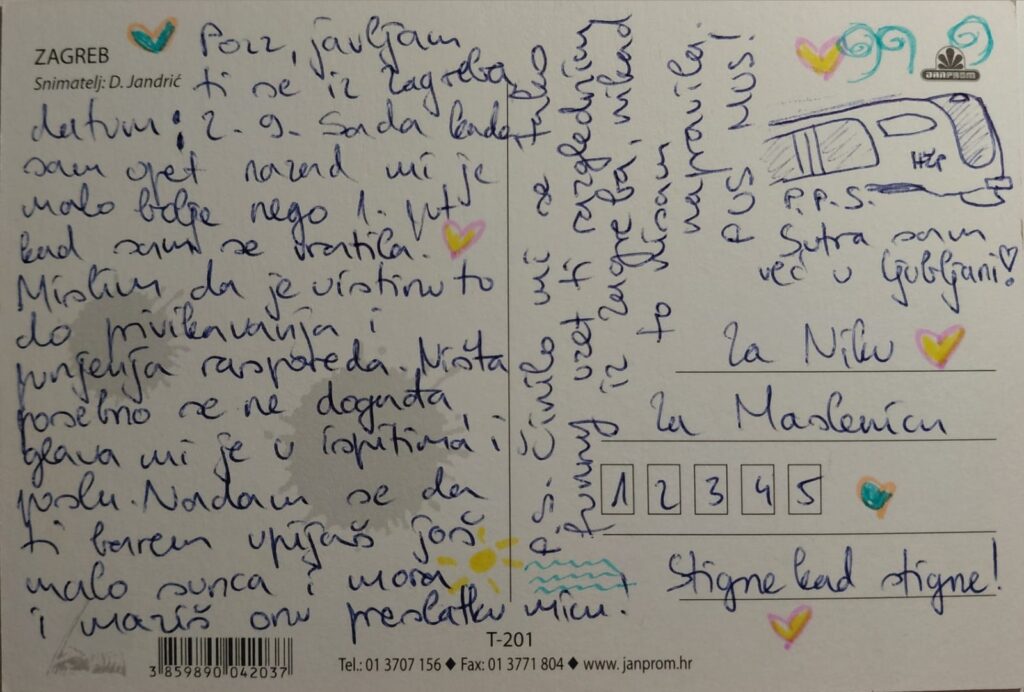 ZAGREB
Snimatelj: D. Jandrić
Pozz, javljam
ti se iz Zagreba
datum: 2.9. Sada kada
sam opet nazad mi je
malo bolje nego 1. put
kad sam se vratila.
Mislim da je uistinu to
do privikavanja i
punjenja rasporeda. Ništa
posebno se ne događa,
glava mi je u ispitima i
poslu. Nadam se da
ti barem upijaš još
malo sunca i mora
i maziš onu preslatku micu!
P.S. Činilo mi se tako
funny uzet ti razglednicu
iz Zagreba, nikad
to nisam
napravila.
PUS PUS!
JANPROM
HŽP
P.P.S.
Sutra sam
već u Ljubljani!
Za Niku
Za Maslenicu
1 2 3 4 5
Stigne kad stigne!
3 859890 042037
T-201
Tel.: 01 3707 156 ♦ Fax: 01 3771 804 ♦ www.janprom.hr